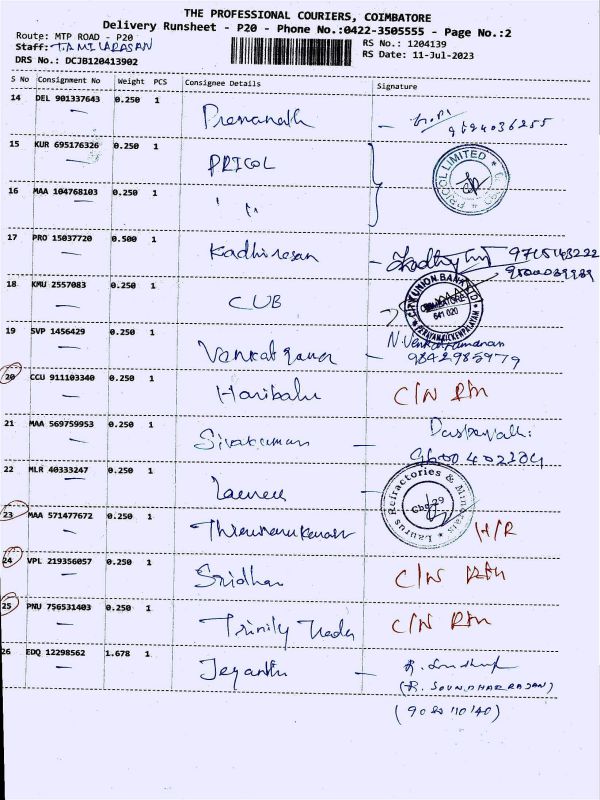 THE PROFESSIONAL COURIERS, COIMBATORE
Delivery Runsheet - P20 - Phone No.:0422-3505555 - Page No.:2
Route: MTP ROAD - P20
RS No.: 1204139
Staff: TAMILARASAN
RS Date: 11-Jul-2023
DRS No.: DCJB120413902
S No Consignment No Weight PCS Consignee Details Signature
14 DEL 901337643 0.250 1
15 KUR 695176326 0.250 1 PRICOL PRICOL LIMITED
16 MAA 104768103 0.250 1 " "
17 PRO 15037720 0.500 1 Kadhiresan
18 KMU 2557083 0.250 1 CUB CITY UNION BANK LTD COIMBATORE 641 020
19 SVP 1456429 0.250 1 N. Venkatramanan
9842985979
20 CCU 911103340 0.250 1 Haribabu C/N
21 MAA 569759953 0.250 1 Sivakumar
22 MLR 40333247 0.250 1 Laurus Refractories & Minerals
23 MAA 571477672 0.250 1 H/R
24 VPL 219356057 0.250 1 Sridhar C/N
25 PNU 756531403 0.250 1 Trinity Trader C/N
26 EDQ 12298562 1.678 1
(R. SOUNDHARRAJAN)